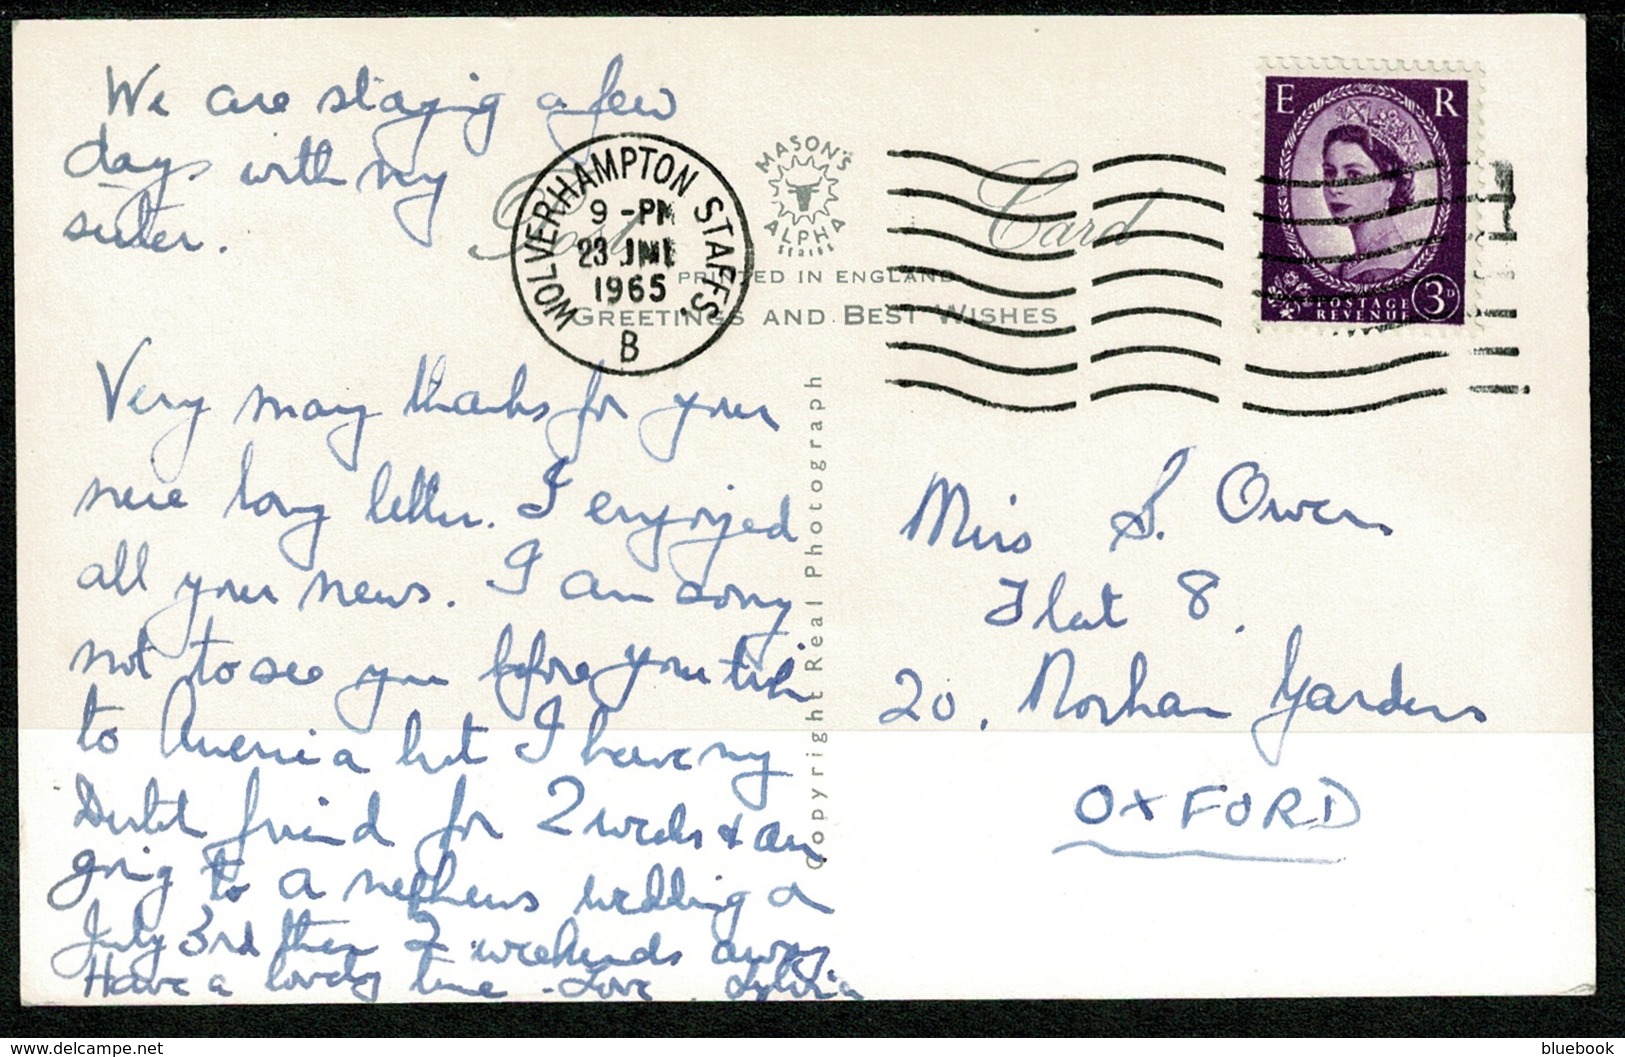 We are staying a few
days with my
sister.
Very many thanks for your
nice long letter. I enjoyed
all your news. I am sorry
not to see you before your trip
to America but I have my
Dutch friend for 2 weeks & am
going to a nephews wedding on
July 3rd then 2 weekends away.
Have a lovely time - Love, Sylvia
Post Card
MASON'S
ALPHA
SERIES
PRINTED IN ENGLAND
GREETINGS AND BEST WISHES
WOLVERHAMPTON STAFFS.
9 - PM
23 JNE
1965
B
E R
POSTAGE
REVENUE
3D
Copyright Real Photograph
Miss S. Owen
Flat 8,
20, Norham Gardens
OXFORD
delcampe.net
bluebook